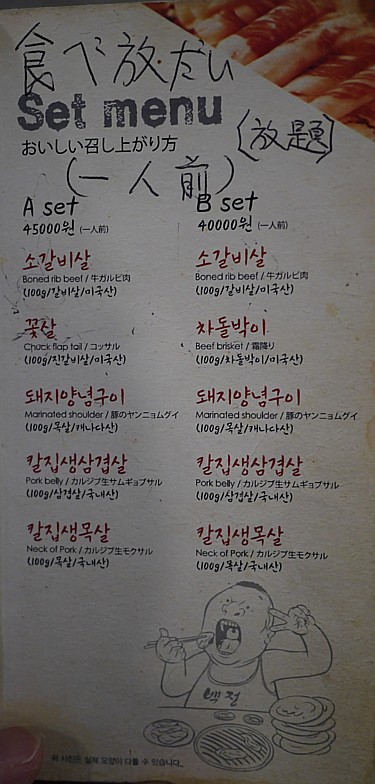 食べ放だい
Set menu
(放題)
おいしい召し上がり方
(一人前)
A set
45000원 (一人前)
소갈비살
Boned rib beef / 牛ガルビ肉
(100g/갈비살/미국산)
꽃살
Chuck flap tail / コッサル
(100g/진갈비살/미국산)
돼지양념구이
Marinated shoulder / 豚のヤンニョムグイ
(100g/목살/캐나다산)
칼집생삼겹살
Pork belly / カルジプ生サムギョプサル
(100g/삼겹살/국내산)
칼집생목살
Neck of Pork / カルジプ生モクサル
(100g/목살/국내산)
B set
40000원 (一人前)
소갈비살
Boned rib beef / 牛ガルビ肉
(100g/갈비살/미국산)
차돌박이
Beef brisket / 霜降り
(100g/차돌박이/미국산)
돼지양념구이
Marinated shoulder / 豚のヤンニョムグイ
(100g/목살/캐나다산)
칼집생삼겹살
Pork belly / カルジプ生サムギョプサル
(100g/삼겹살/국내산)
칼집생목살
Neck of Pork / カルジプ生モクサル
(100g/목살/국내산)
백전
위 사진은 실제 모양이 다를 수 있습니다.